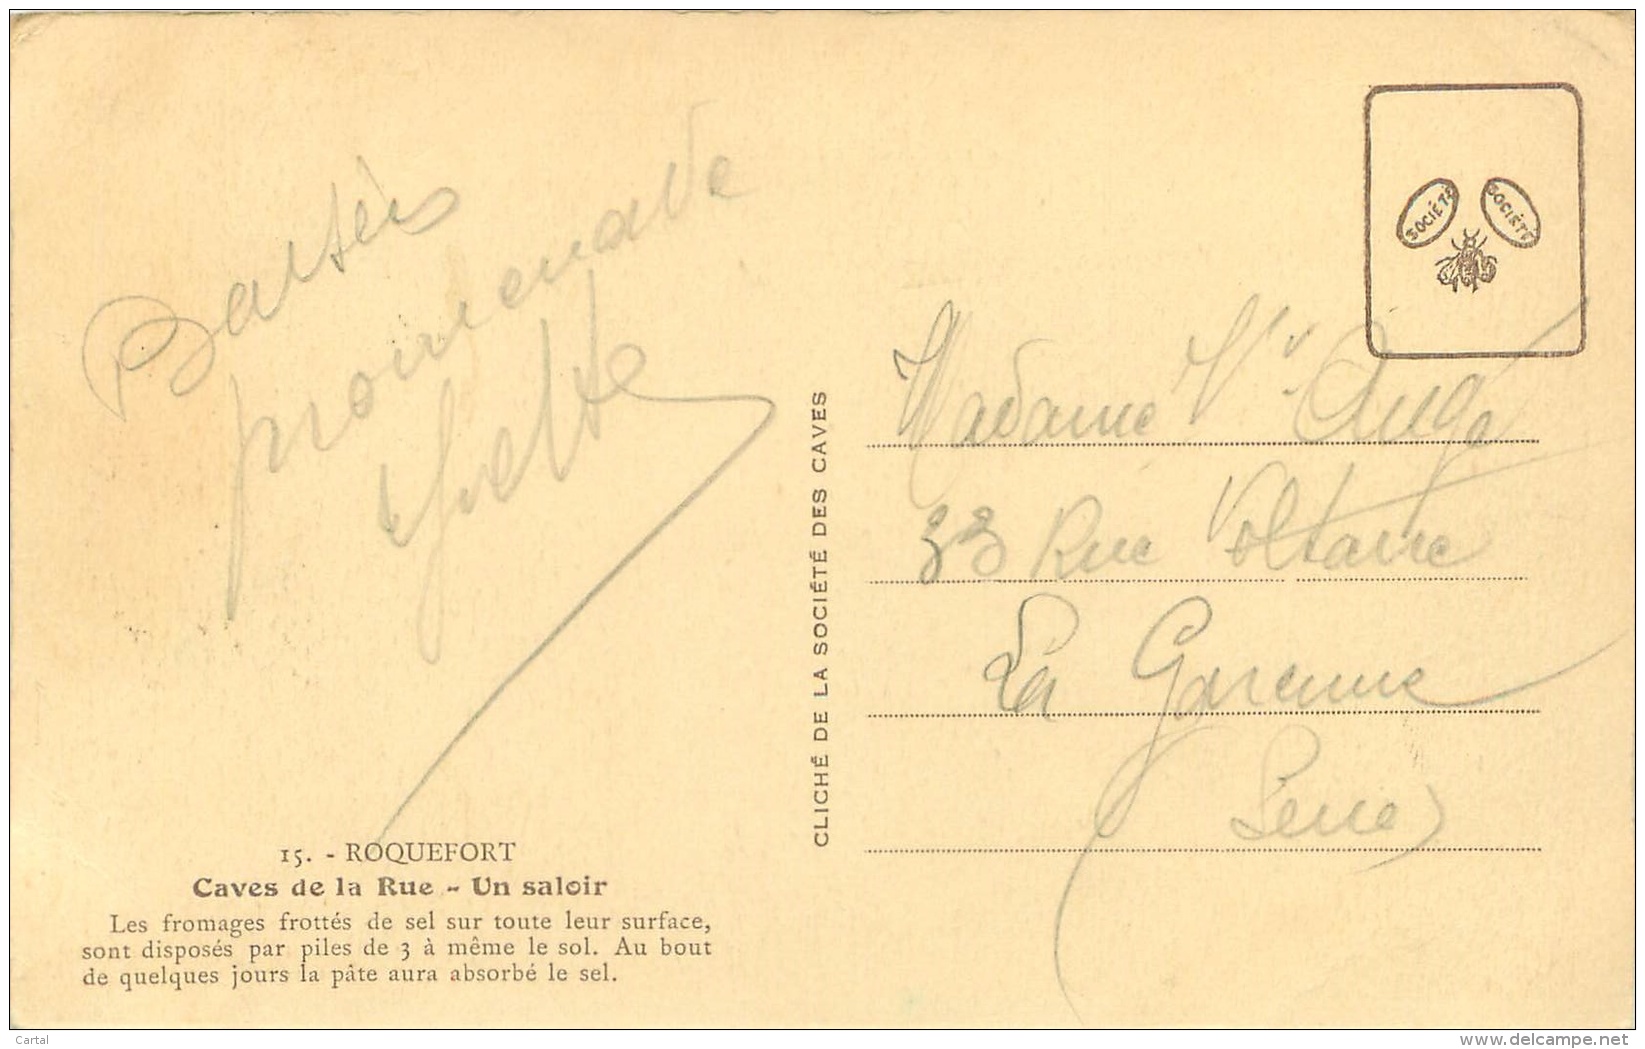 Baisers
promenade
Yvette
15. - ROQUEFORT
Caves de la Rue - Un saloir
Les fromages frottés de sel sur toute leur surface,
sont disposés par piles de 3 à même le sol. Au bout
de quelques jours la pâte aura absorbé le sel.
CLICHÉ DE LA SOCIÉTÉ DES CAVES
SOCIÉTÉ
SOCIÉTÉ
Madame Vve Augé
33 Rue Voltaire
La Garenne
(Seine)
Cartal
www.delcampe.net